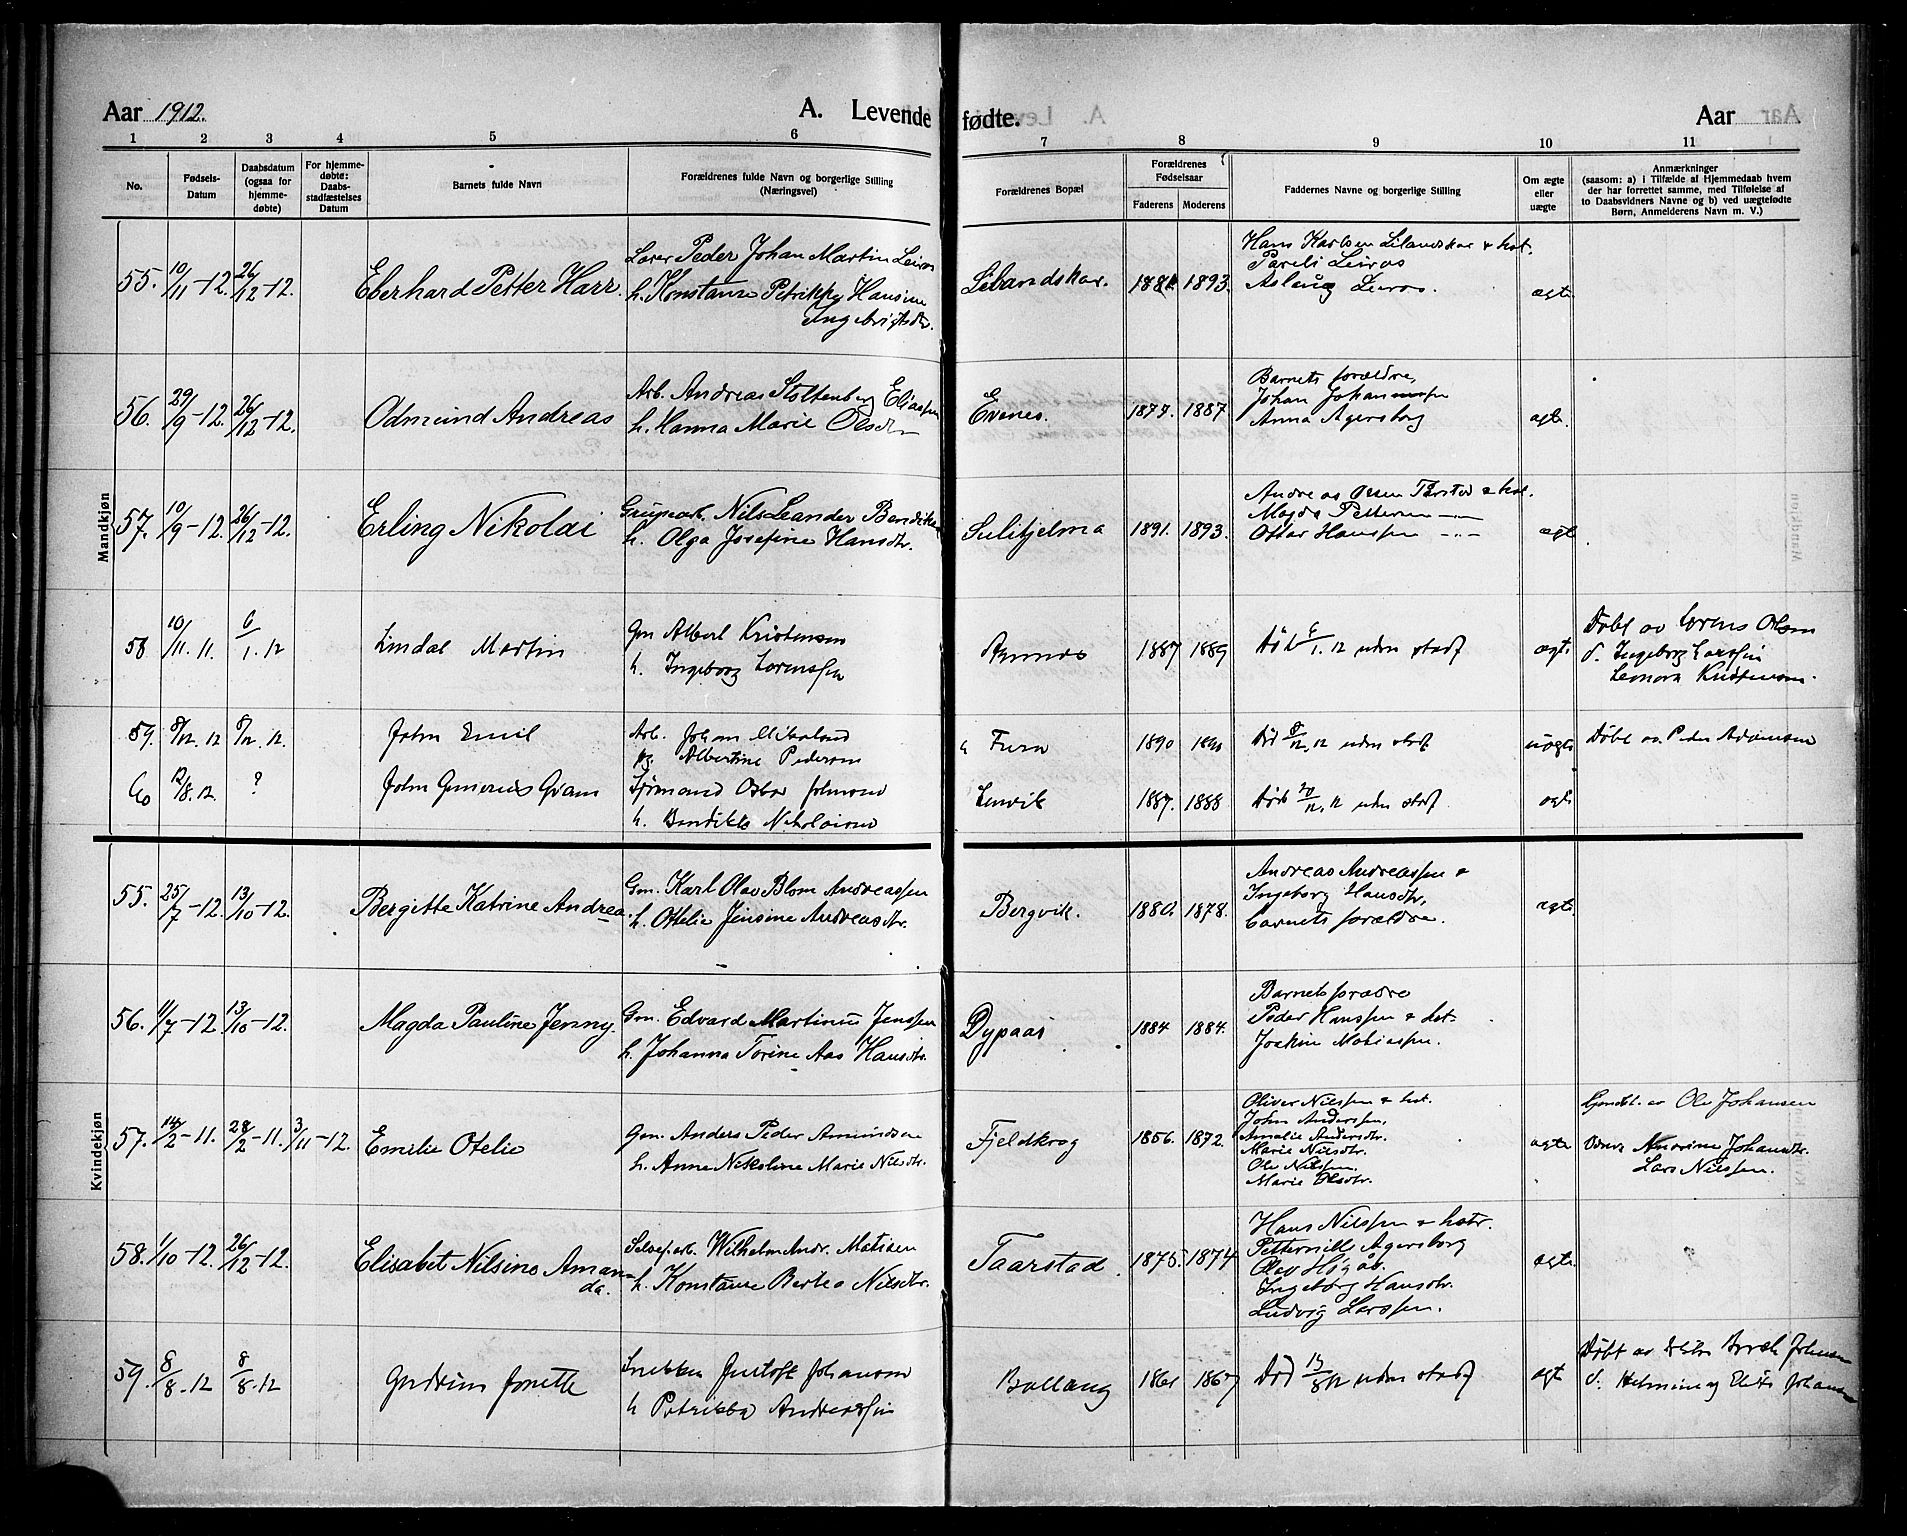 Aar 1912.
A. Levende
fødte.
Aar
1 2 3 4 5 6 7 8 9 10 11
No.
Fødsels-
Datum
Daabsdatum
(ogsaa for
hjemme-
døbte)
For hjemme-
døbte:
Daabs-
stadfæstelses
Datum
Barnets fulde Navn
Forældrenes fulde Navn og borgerlige Stilling
(Næringsvei)
Forældrenes Bopæl
Forældrenes
Fødselsaar
Faderens Moderens
Faddernes Navne og borgerlige Stilling
Om ægte
eller
uægte
Anmærkninger
(saasom: a) i Tilfælde af Hjemmedaab hvem
der har forrettet samme, med Tilføielse af
to Daabsvidners Navne og b) ved uægtefødte
Børn, Anmelderens Navn m. V.)
Mandkjøn
55. 10/11-12. 26/12-12. Eberhard Petter Harr
Lærer Peder Johan Martin Leiros
h. Konstanse Petrikke Hansine
Ingebrigtsdtr.
1893.
Hans Karlsen Lilandskar & hst.
Pareli Leiros
Aslaug Leiros.
ægte
56. 29/9-12. 26/12-12. Odmund Andreas
Arb. Andreas Stoltenberg Eliassen
h. Hanna Marie Olsdtr
Evenes. 1877. 1887
Barnets forældre,
Johan Johannessen
Anna Agersborg
ægte.
57. 10/9-12. 26/12-12. Erling Nikolai
Grupearb. Nils Leander Bendiktsen
h. Olga Josefine Hansdtr.
Sulitjelma 1891. 1893.
Andreas Olsen Tårstad & hst.
Magda Pettersen -"-
Ottar Hanssen -"-
ægte
58 10/11. 11. 6/1. 12 Lindal Martin
Gm Albert Kristensen
h. Ingeborg Lorenssen
1887 1889
Død 6/1. 12 uden stadf
ægte
Døbt av Lorens Olsen
v. Ingeborg Larssen
Leonora Kristensen.
59. 8/12. 12 8/12. 12. John Emil
Arb. Johan Mikalsen
pg. Albertine Pedersen
1890
Død 8/12. 12 uden stadf
uægte
Døbt av Peder Adamsen
60 12/8. 12. ? John Gunerius Gram
Sjømand Oskar Johnsen
h. Bendikte Nikolaisen
Lenvik 1887. 1888
Død 20/12. 12 uden stadf
ægte
Kvindekjøn
55. 25/7-12. 13/10-12. Bergitte Katrine Andrea.
Gm. Karl Olav Blom Andreassen
h. Otelie Jensine Andreasdtr.
Bergvik. 1880. 1878.
Andreas Andreassen &
Ingeborg Hansdtr,
barnets forældre.
ægte
56. 11/7-12. 13/10-12. Magda Pauline Jenny.
Gm. Edvard Martinus Jenssen
h. Johanna Torine Aas Hansdtr.
Dypaas 1884 1884.
Barnets forædre
Peder Hanssen & hst.
Joakim Matiassen.
57. 14/2-11. 28/2-11. 3/11-12. Emilie Otelie
Gm. Anders Peder Amundsen
h. Anne Nikoline Marie Nilsdtr.
Fjeldkrog 1856. 1872.
Oliver Nilssen & hst.
John Anderssen,
Amalie Andersdtr.
Marie Nilsdtr.
Ole Nilssen.
Marie Olsdtr.
ægte
Hjemdbt. av Ole Johansen
Johansdtr.
Lars Nilssen.
58. 1/10-12. 26/12-12. Elisabet Nilsine Aman-
da.
Selveierarb. Wilhelm Andr. Matisen
h. Konstanse Bertea Nilsdtr.
Taarstad 1875. 1874
Hans Nilssen & hstr.
Petternille Agersborg
Olav Høgås.
Ingeborg Hansdtr.
Ludvig Larssen.
ægte
59. 8/8. 12 8/8. 12 Gudrun Jonette
Snekker Justoft Johansen
h Petrikke Anderssen
Ballang 1861 1867
Død 13/8 12 uden stadf
ægt
Døbt av
v. Helmine og Johansen